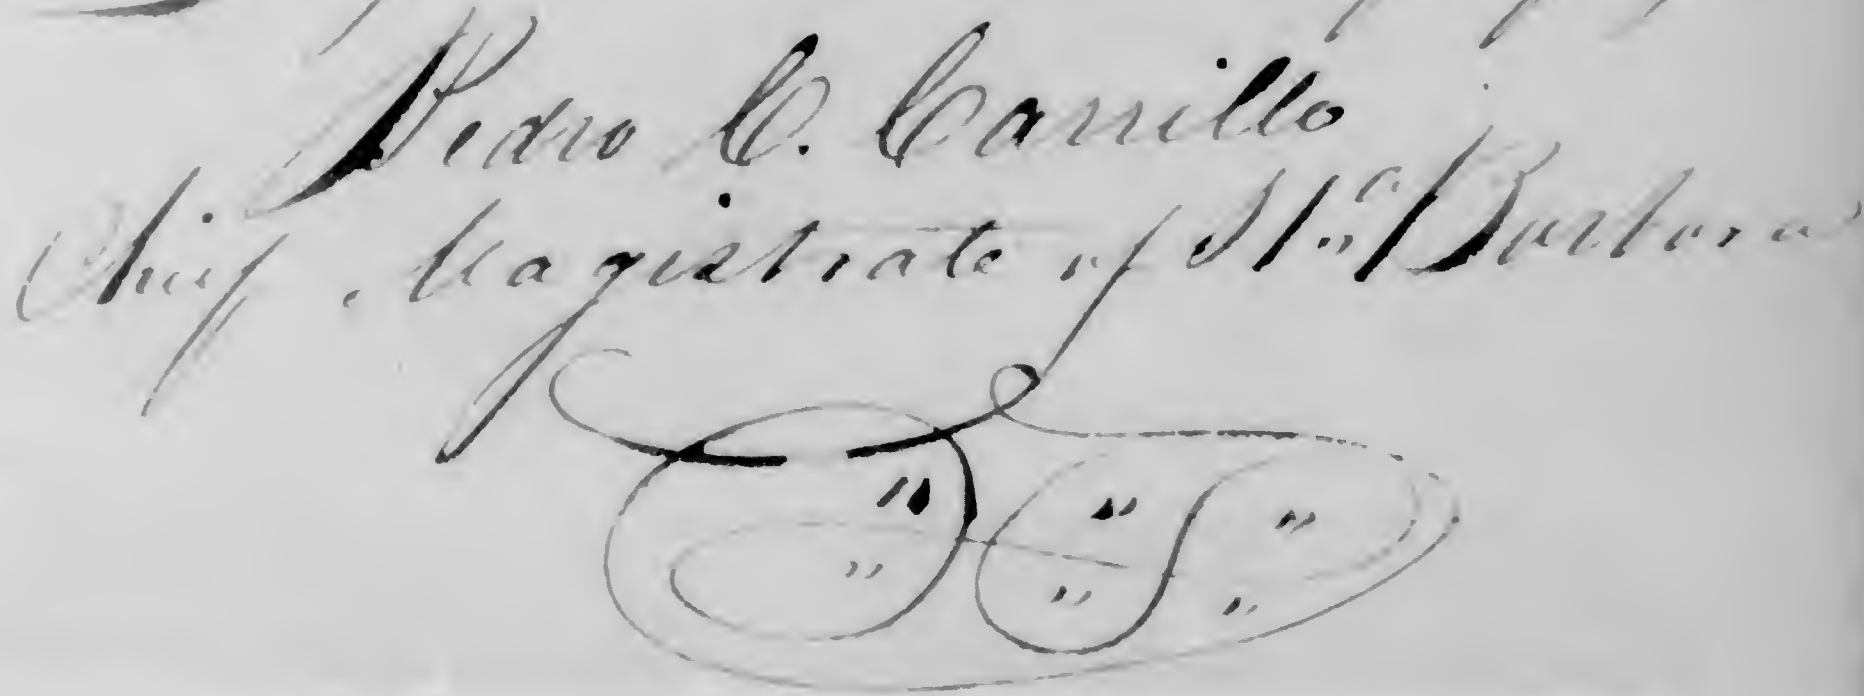 Pedro C. Carrillo
Chief Magistrate of Sta Barbara